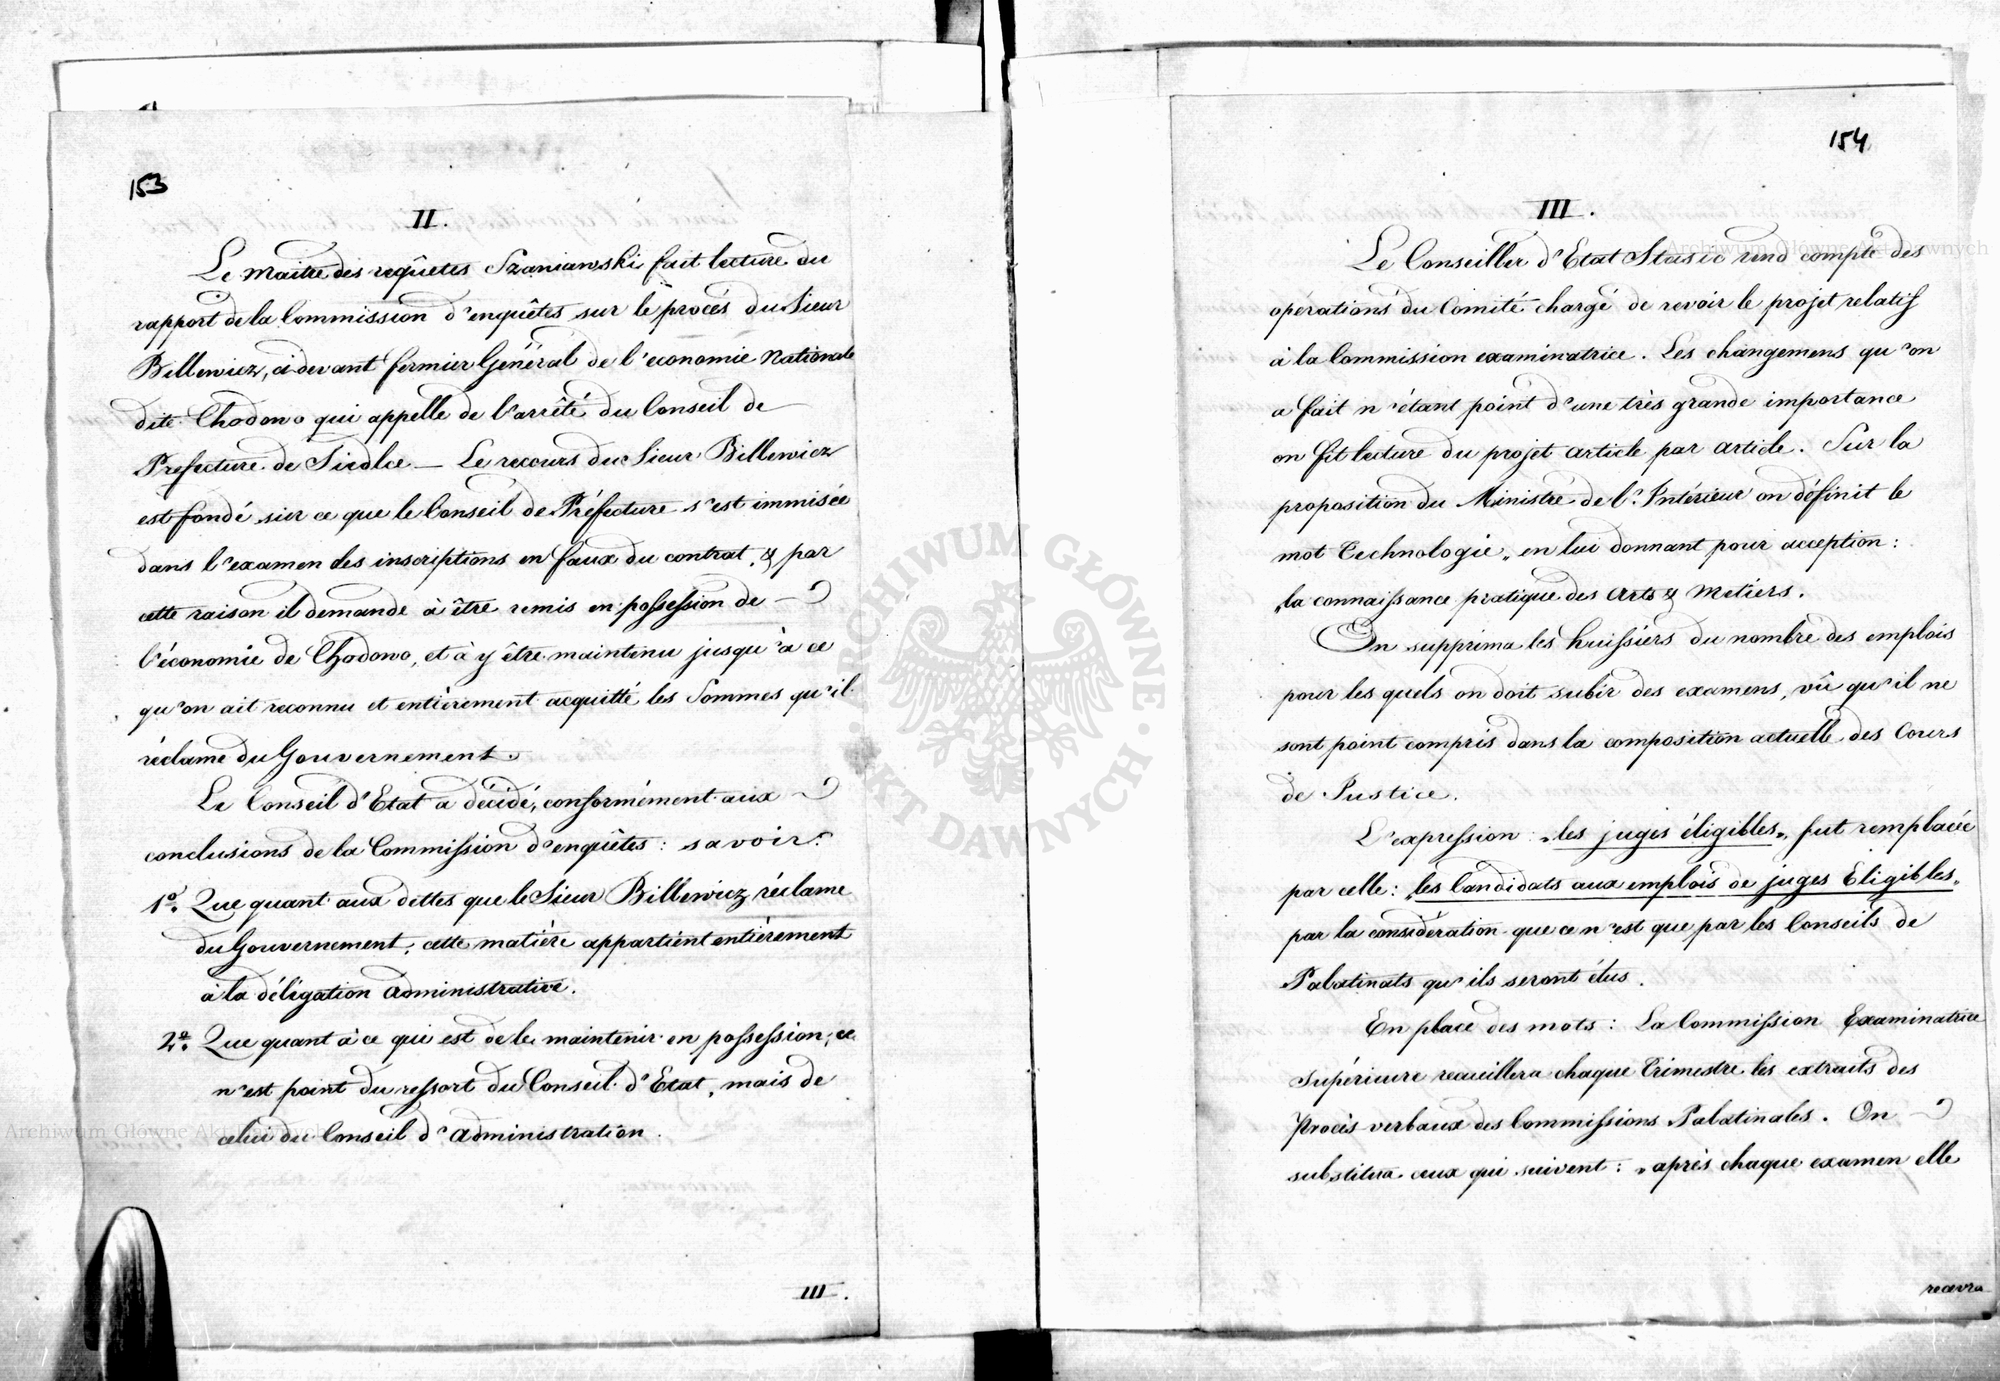 153
II.
Le Maitre des requêtes Szaniawski fait lecture du
rapport de la Commission d'enquêtes sur le procés du Sieur
Billewicz, ci-devant fermier Général de l'économie Nationale
dite Chodowo qui appelle de l'arrêté du Conseil de
Prefecture de Siedlce. — Le recours du Sieur Billewicz
est fondé sur ce que le Conseil de Préfecture s'est immisée
dans l'examen des inscriptions en faux du contrat, & par
cette raison il demande à être remis en possession de
l'économie de Chodowo, et à y être maintenu jusqu'à ce
qu'on ait reconnu et entièrement acquitté les Sommes qu'il
réclame du Gouvernement.
Le Conseil d'Etat a décidé, conformément aux
conclusions de la Commission d'enquêtes: savoir:
1º. Que quant aux dettes que le Sieur Billewicz réclame
du Gouvernement, cette matière appartient entièrement
à la délégation administrative.
2º. Que quant à ce qui est de le maintenir en possession, ce
n'est point du ressort du Conseil d'Etat, mais de
celui du Conseil d'administration.
III.
154
III.
Le Conseiller d'Etat Stasic rend compte des
opérations du Comité chargé de revoir le projet relatif
à la Commission examinatrice. Les changemens qu'on
a fait n'étant point d'une très grande importance
on fit lecture du projet article par article. Sur la
proposition du Ministre de l'Intérieur on définit le
mot Technologie, en lui donnant pour acception:
„la connaissance pratique des Arts & Métiers.
On supprima les huissiers du nombre des emplois
pour les quels on doit subir des examens, vû qu'il ne
sont point compris dans la composition actuelle des Cours
de Justice.
L'expression: „les juges éligibles„ fut remplacée
par celle: „les Candidats aux emplois de juges Eligibles„
par la considération que ce n'est que par les Conseils de
Palatinats qu'ils seront élus.
En place des mots: La Commission Examinatrice
Supérieure recueillera chaque Trimestre les extraits des
Procès verbaux des Commissions Palatinales. On
substitua ceux qui suivent: „après chaque examen elle
recevra
ARCHIWUM GŁÓWNE AKT DAWNYCH
Archiwum Główne Akt Dawnych
Archiwum Główne Akt Dawnych